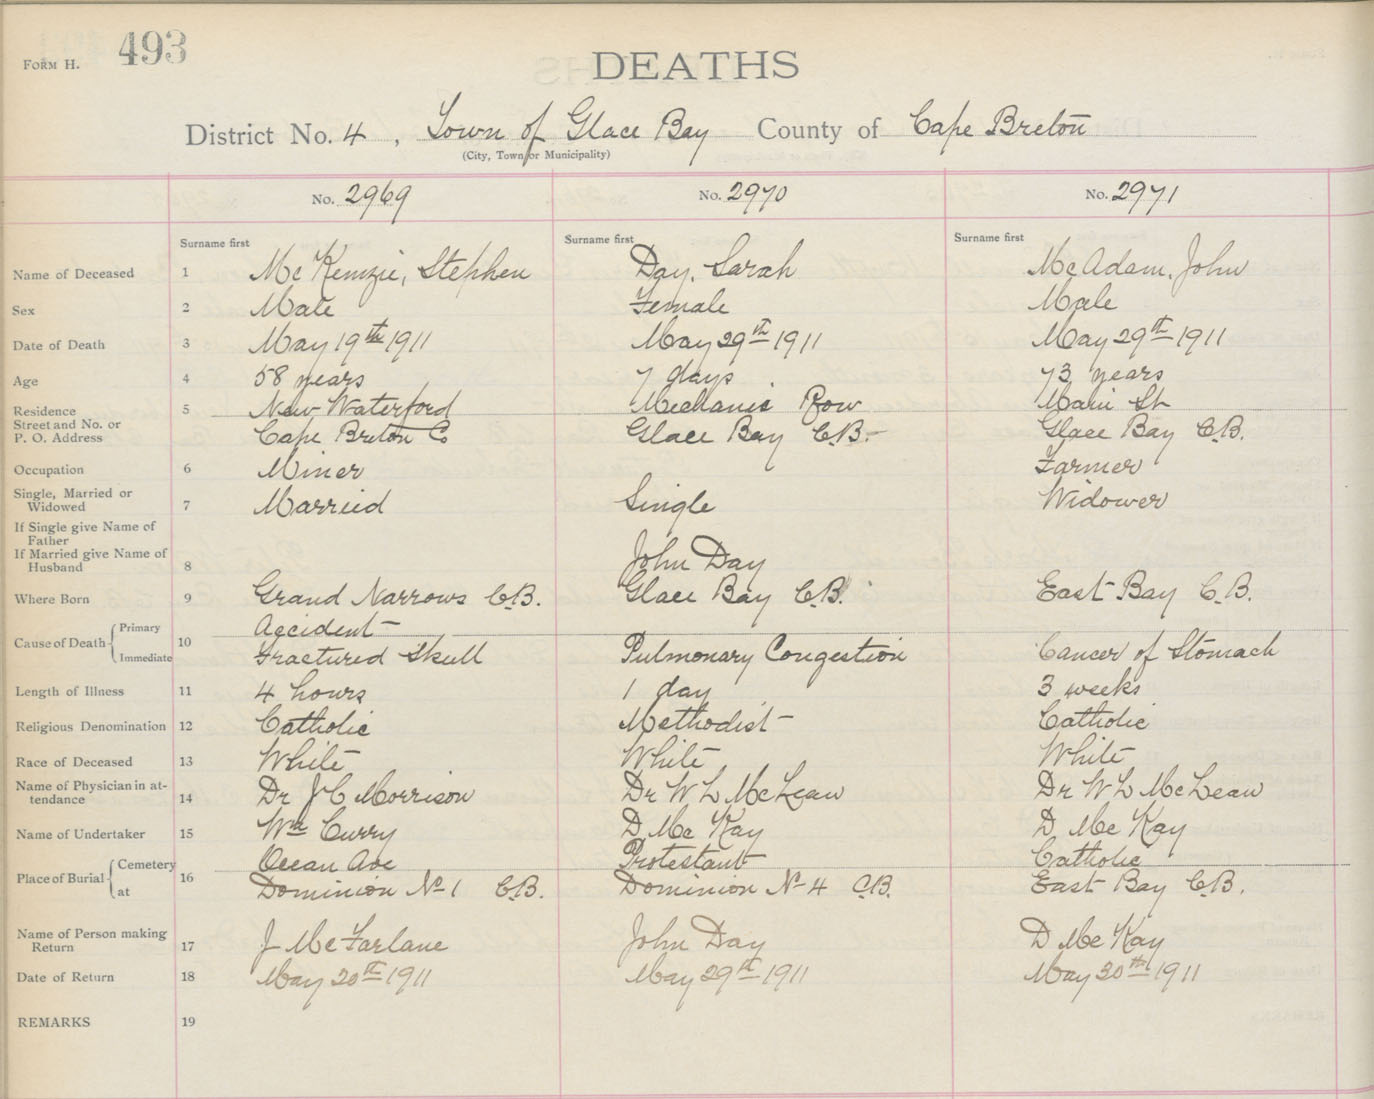 FORM H. 493
DEATHS
District No. 4, Town of Glace Bay County of Cape Breton
(City, Town or Municipality)
No. 2969 No. 2970 No. 2971
Surname first Surname first Surname first
Name of Deceased 1 McKenzie, Stephen Day, Sarah McAdam, John
Sex 2 Male Female Male
Date of Death 3 May 19th 1911 May 29th 1911 May 29th 1911
Age 4 58 years 7 days 73 years
Residence 5 New Waterford Mechanic Row Main St
Street and No. or
P. O. Address Cape Breton Co Glace Bay C.B. Glace Bay C.B.
Occupation 6 Miner Farmer
Single, Married or
Widowed 7 Married Single Widower
If Single give Name of
Father
If Married give Name of
Husband 8 John Day
Where Born 9 Grand Narrows C.B. Glace Bay C.B. East Bay C.B.
Cause of Death 10 Primary Accident
Immediate Fractured Skull Pulmonary Congestion Cancer of Stomach
Length of Illness 11 4 hours 1 day 3 weeks
Religious Denomination 12 Catholic Methodist Catholic
Race of Deceased 13 White White White
Name of Physician in at-
tendance 14 Dr J C Morrison Dr W L McLean Dr W L McLean
Name of Undertaker 15 Wm Curry D McKay D McKay
Place of Burial 16 Cemetery Ocean Ave Protestant Catholic
at Dominion No 1 C.B. Dominion No 4 C.B. East Bay C.B.
Name of Person making
Return 17 J McFarlane John Day D McKay
Date of Return 18 May 20th 1911 May 29th 1911 May 30th 1911
REMARKS 19